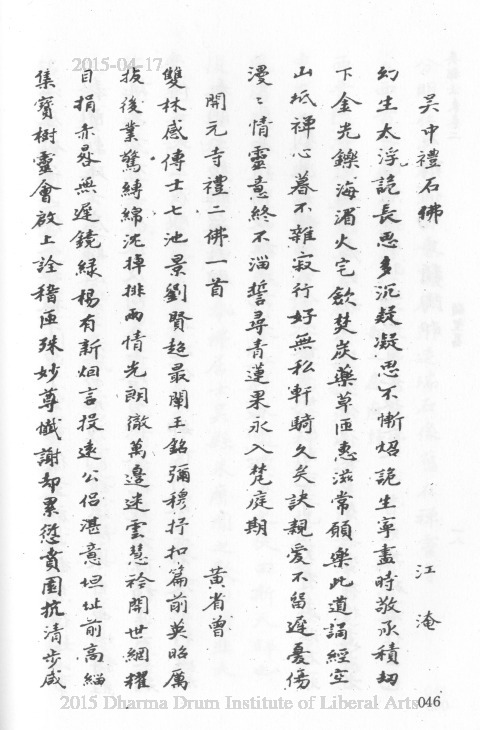 2015-04-17
吳中禮石佛 江淹
幻生太浮詭長思多沉疑凝思不慚炤詭生寧盡時敬承積劫
下金光鑠海湄火宅歛焚炭藥草匝惠滋常願樂此道誦經空
山坻禪心暮不雜寂行好無私軒騎久矣訣親愛不留遲憂傷
漫〻情靈意終不淄誓尋青蓮果永入梵庭期
開元寺禮二佛一首 黃省曾
雙林感傅士七池景劉賢超最闡王銘彌穆抒扣篇前英昭厲
拔後業驚縛綿沈掉排兩情光朗徹萬邊迷雲慧衿開世網耀
目捐赤晷無遲鏡綠楊有新烟言投遠公侶湛意坦址前高緇
集寶樹靈會啟上詮稽匝殊妙尊懺謝却累愆賁園抗清步咸
046
2015 Dharma Drum Institute of Liberal Arts